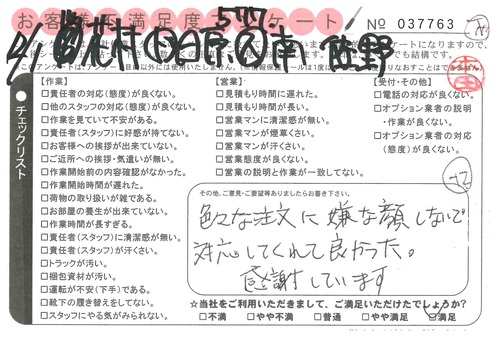 お客様満足度アンケート
№ 037763
チェックリスト
【作業】
□責任者の対応(態度)が良くない。
□他のスタッフの対応(態度)が良くない。
□作業を見ていて不安がある。
□責任者(スタッフ)に好感が持てない。
□お客様への挨拶が出来ていない。
□ご近所への挨拶・気遣いが無い。
□作業開始前の内容確認がなかった。
□作業開始時間が遅れた。
□荷物の取り扱いが雑である。
□お部屋の養生が出来ていない。
□作業時間が長すぎる。
□責任者(スタッフ)に清潔感が無い。
□責任者(スタッフ)が汗くさい。
□トラックが汚い。
□梱包資材が汚い。
□運転が不安(下手)である。
□靴下の履き替えをしてない。
□スタッフにやる気がみられない。
【営業】
□見積もり時間に遅れた。
□見積もり時間が長い。
□営業マンに清潔感が無い。
□営業マンが煙草くさい。
□営業マンが汗くさい。
□営業態度が良くない。
□営業の説明と作業が一致してない。
【受付・その他】
□電話の対応が良くない。
□オプション業者の説明
・作業が良くない。
□オプション業者の対応
(態度)が良くない。
その他、ご意見・ご要望等ありましたらお書き下さい。
色々な注文に嫌な顔しないで
対応してくれて良かった。
感謝しています
☆当社をご利用いただきまして、ご満足いただけたでしょうか?
□不満 □やや不満 □普通 □やや満足 □満足